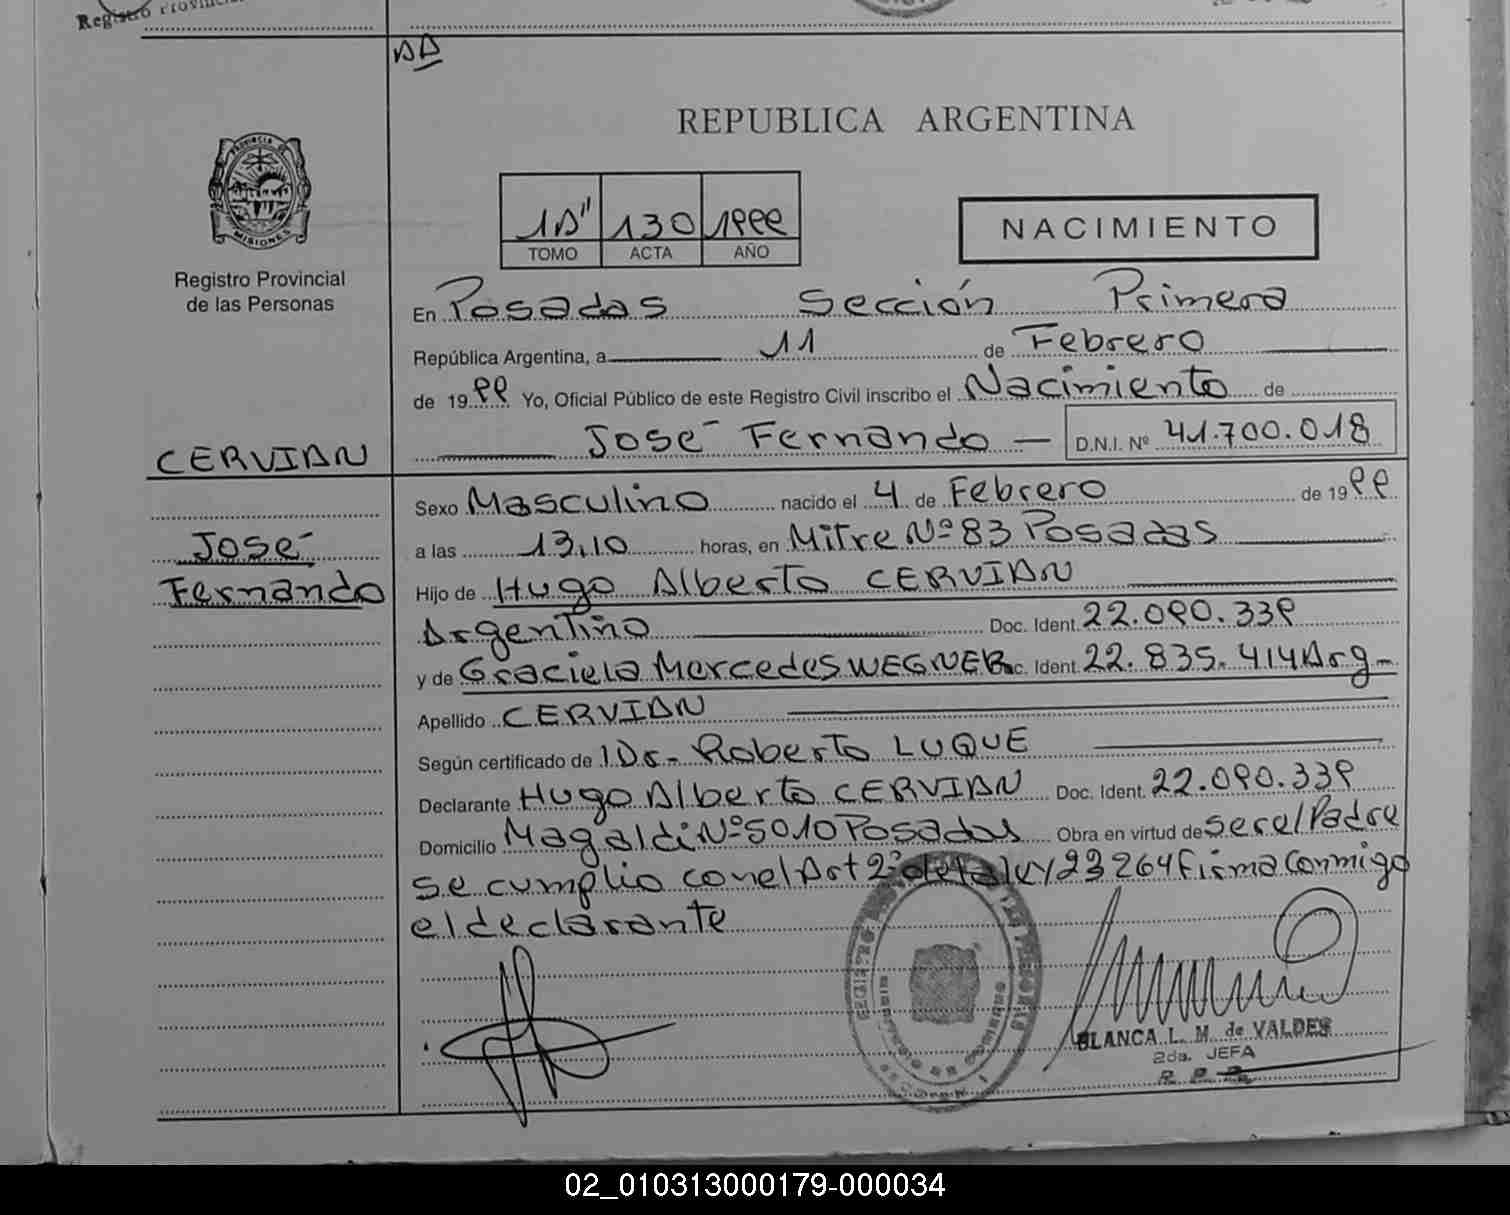 Registro Provincial
AA
REPUBLICA ARGENTINA
PROVINCIA DE
MISIONES
Registro Provincial
de las Personas
1A" 130 1999
TOMO ACTA AÑO
NACIMIENTO
En Posadas Sección Primera
República Argentina, a 11 de Febrero
de 1999 Yo, Oficial Público de este Registro Civil inscribo el Nacimiento de
José Fernando — D.N.I. Nº 41.700.018
CERVIAN
José
Fernando
Sexo Masculino nacido el 4 de Febrero de 1999
a las 13,10 horas, en Mitre Nº 83 Posadas
Hijo de Hugo Alberto CERVIAN
Argentino Doc. Ident. 22.090.339
y de Graciela Mercedes WEGNER Doc. Ident. 22.835.414 Arg-
Apellido CERVIAN
Según certificado de Dr. Roberto LUQUE
Declarante Hugo Alberto CERVIAN Doc. Ident. 22.090.339
Domicilio Magaldi Nº 5010 Posadas Obra en virtud de ser el Padre
se cumplio con el Art 2º de la ley 23264 firma conmigo
el declarante
BLANCA L. M. de VALDES
2da. JEFA
R. P. P.
02_010313000179-000034